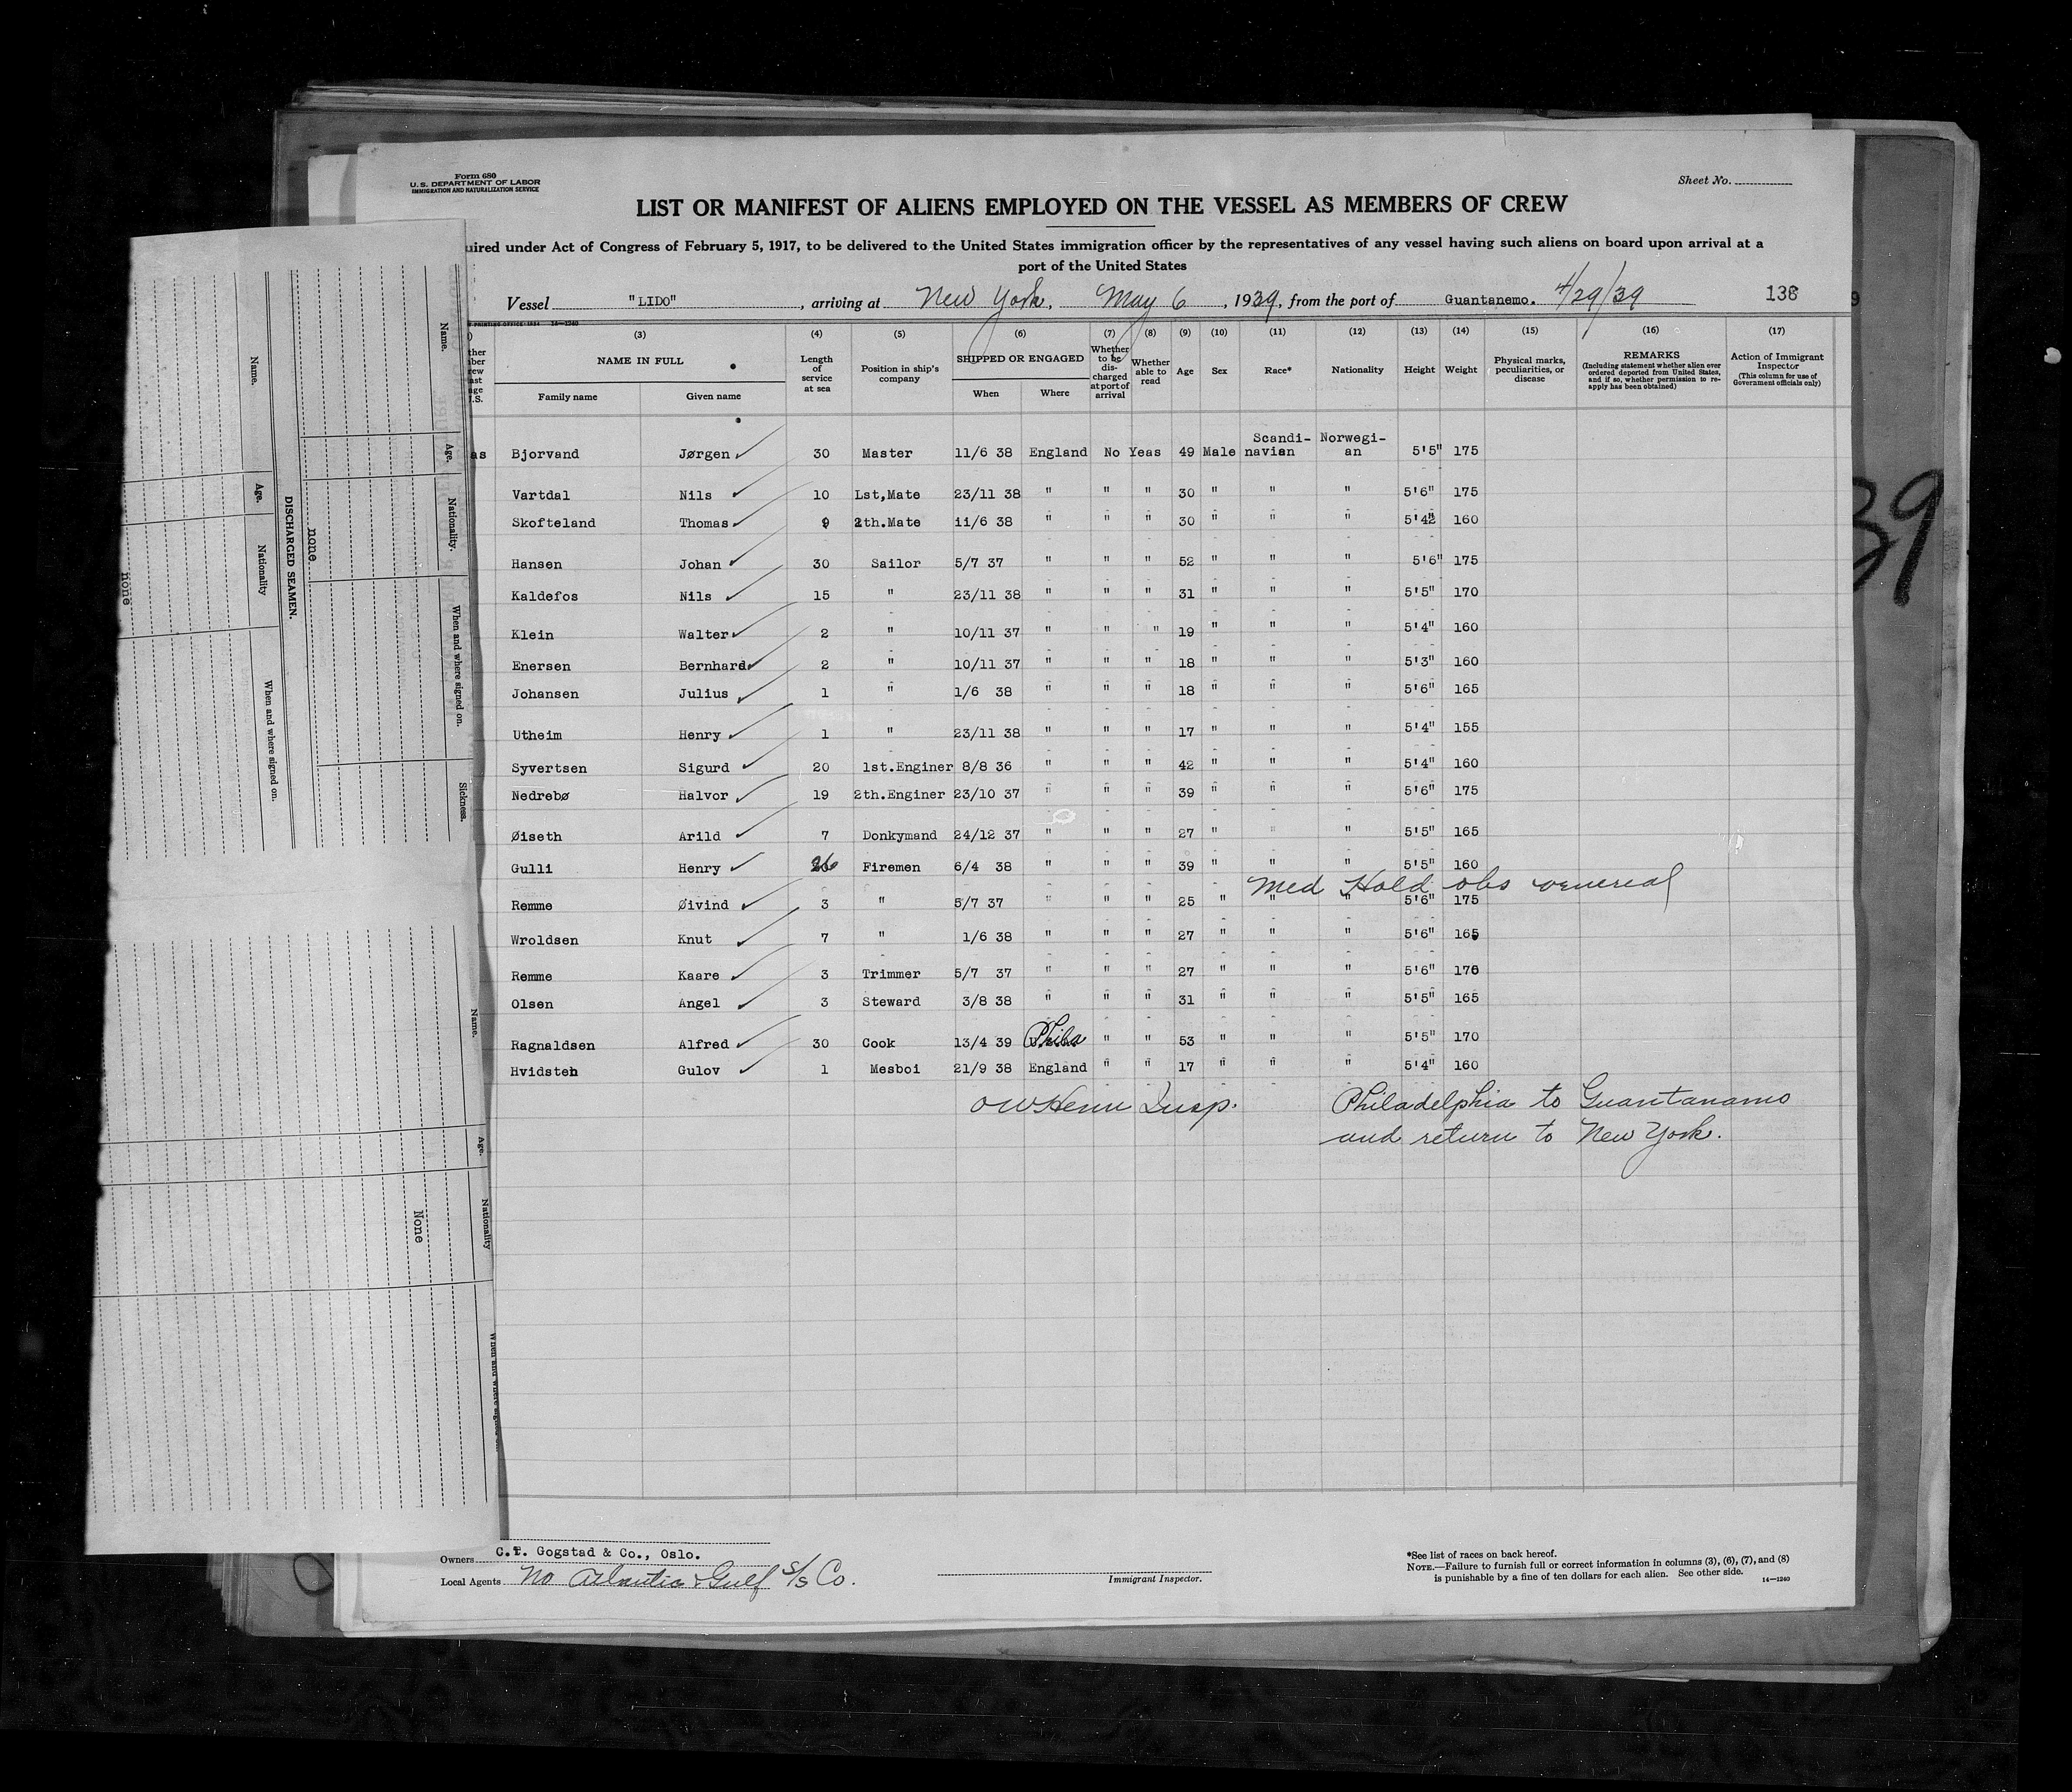 Form 680
U. S. DEPARTMENT OF LABOR
IMMIGRATION AND NATURALIZATION SERVICE
Sheet No.
LIST OR MANIFEST OF ALIENS EMPLOYED ON THE VESSEL AS MEMBERS OF CREW
uired under Act of Congress of February 5, 1917, to be delivered to the United States immigration officer by the representatives of any vessel having such aliens on board upon arrival at a
port of the United States
Vessel "LIDO", arriving at New York, May 6, 1939, from the port of Guantanemo. 4/29/39 138
(3) (4) (5) (6) (7) (8) (9) (10) (11) (12) (13) (14) (15) (16) (17)
NAME IN FULL
Family name Given name
Length of service at sea
Position in ship's company
SHIPPED OR ENGAGED
When Where
Whether to be discharged at port of arrival
Whether able to read
Age
Sex
Race*
Nationality
Height
Weight
Physical marks, peculiarities, or disease
REMARKS
(Including statement whether alien ever ordered deported from United States, and if so, whether permission to reapply has been obtained)
Action of Immigrant Inspector
(This column for use of Government officials only)
Scandi- Norwegi-
as Bjorvand Jørgen 30 Master 11/6 38 England No Yeas 49 Male navian an 5'5" 175
Vartdal Nils 10 Lst,Mate 23/11 38 " " " 30 " " " 5'6" 175
Skofteland Thomas 9 2th.Mate 11/6 38 " " " 30 " " " 5'4" 160
Hansen Johan 30 Sailor 5/7 37 " " " 52 " " " 5'6" 175
Kaldefos Nils 15 " 23/11 38 " " " 31 " " " 5'5" 170
Klein Walter 2 " 10/11 37 " " " 19 " " " 5'4" 160
Enersen Bernhard 2 " 10/11 37 " " " 18 " " " 5'3" 160
Johansen Julius 1 " 1/6 38 " " " 18 " " " 5'6" 165
Utheim Henry 1 " 23/11 38 " " " 17 " " " 5'4" 155
Syvertsen Sigurd 20 1st.Enginer 8/8 36 " " " 42 " " " 5'4" 160
Nedrebø Halvor 19 2th.Enginer 23/10 37 " " " 39 " " " 5'6" 175
Øiseth Arild 7 Donkymand 24/12 37 " " " 27 " " " 5'5" 165
Gulli Henry 26 Firemen 6/4 38 " " " 39 " " " 5'5" 160
Med Hold obs venereal
Remme Øivind 3 " 5/7 37 " " " 25 " " " 5'6" 175
Wroldsen Knut 7 " 1/6 38 " " " 27 " " " 5'6" 165
Remme Kaare 3 Trimmer 5/7 37 " " " 27 " " " 5'6" 170
Olsen Angel 3 Steward 3/8 38 " " " 31 " " " 5'5" 165
Ragnaldsen Alfred 30 Cook 13/4 39 Phila " " 53 " " " 5'5" 170
Hvidsten Gulov 1 Mesboi 21/9 38 England " " 17 " " " 5'4" 160
Insp.
Philadelphia to Guantanamo
and return to New York.
Owners C.T. Gogstad & Co., Oslo.
Local Agents No Atlantic & Gulf S/S Co.
Immigrant Inspector.
*See list of races on back hereof.
NOTE.—Failure to furnish full or correct information in columns (3), (6), (7), and (8)
is punishable by a fine of ten dollars for each alien. See other side.
14—1240
39
Name.
Age.
Nationality.
When and where signed on.
Sickness.
none
DISCHARGED SEAMEN.
Name.
Age.
Nationality
When and where signed on.
none
Name.
Age.
Nationality
None